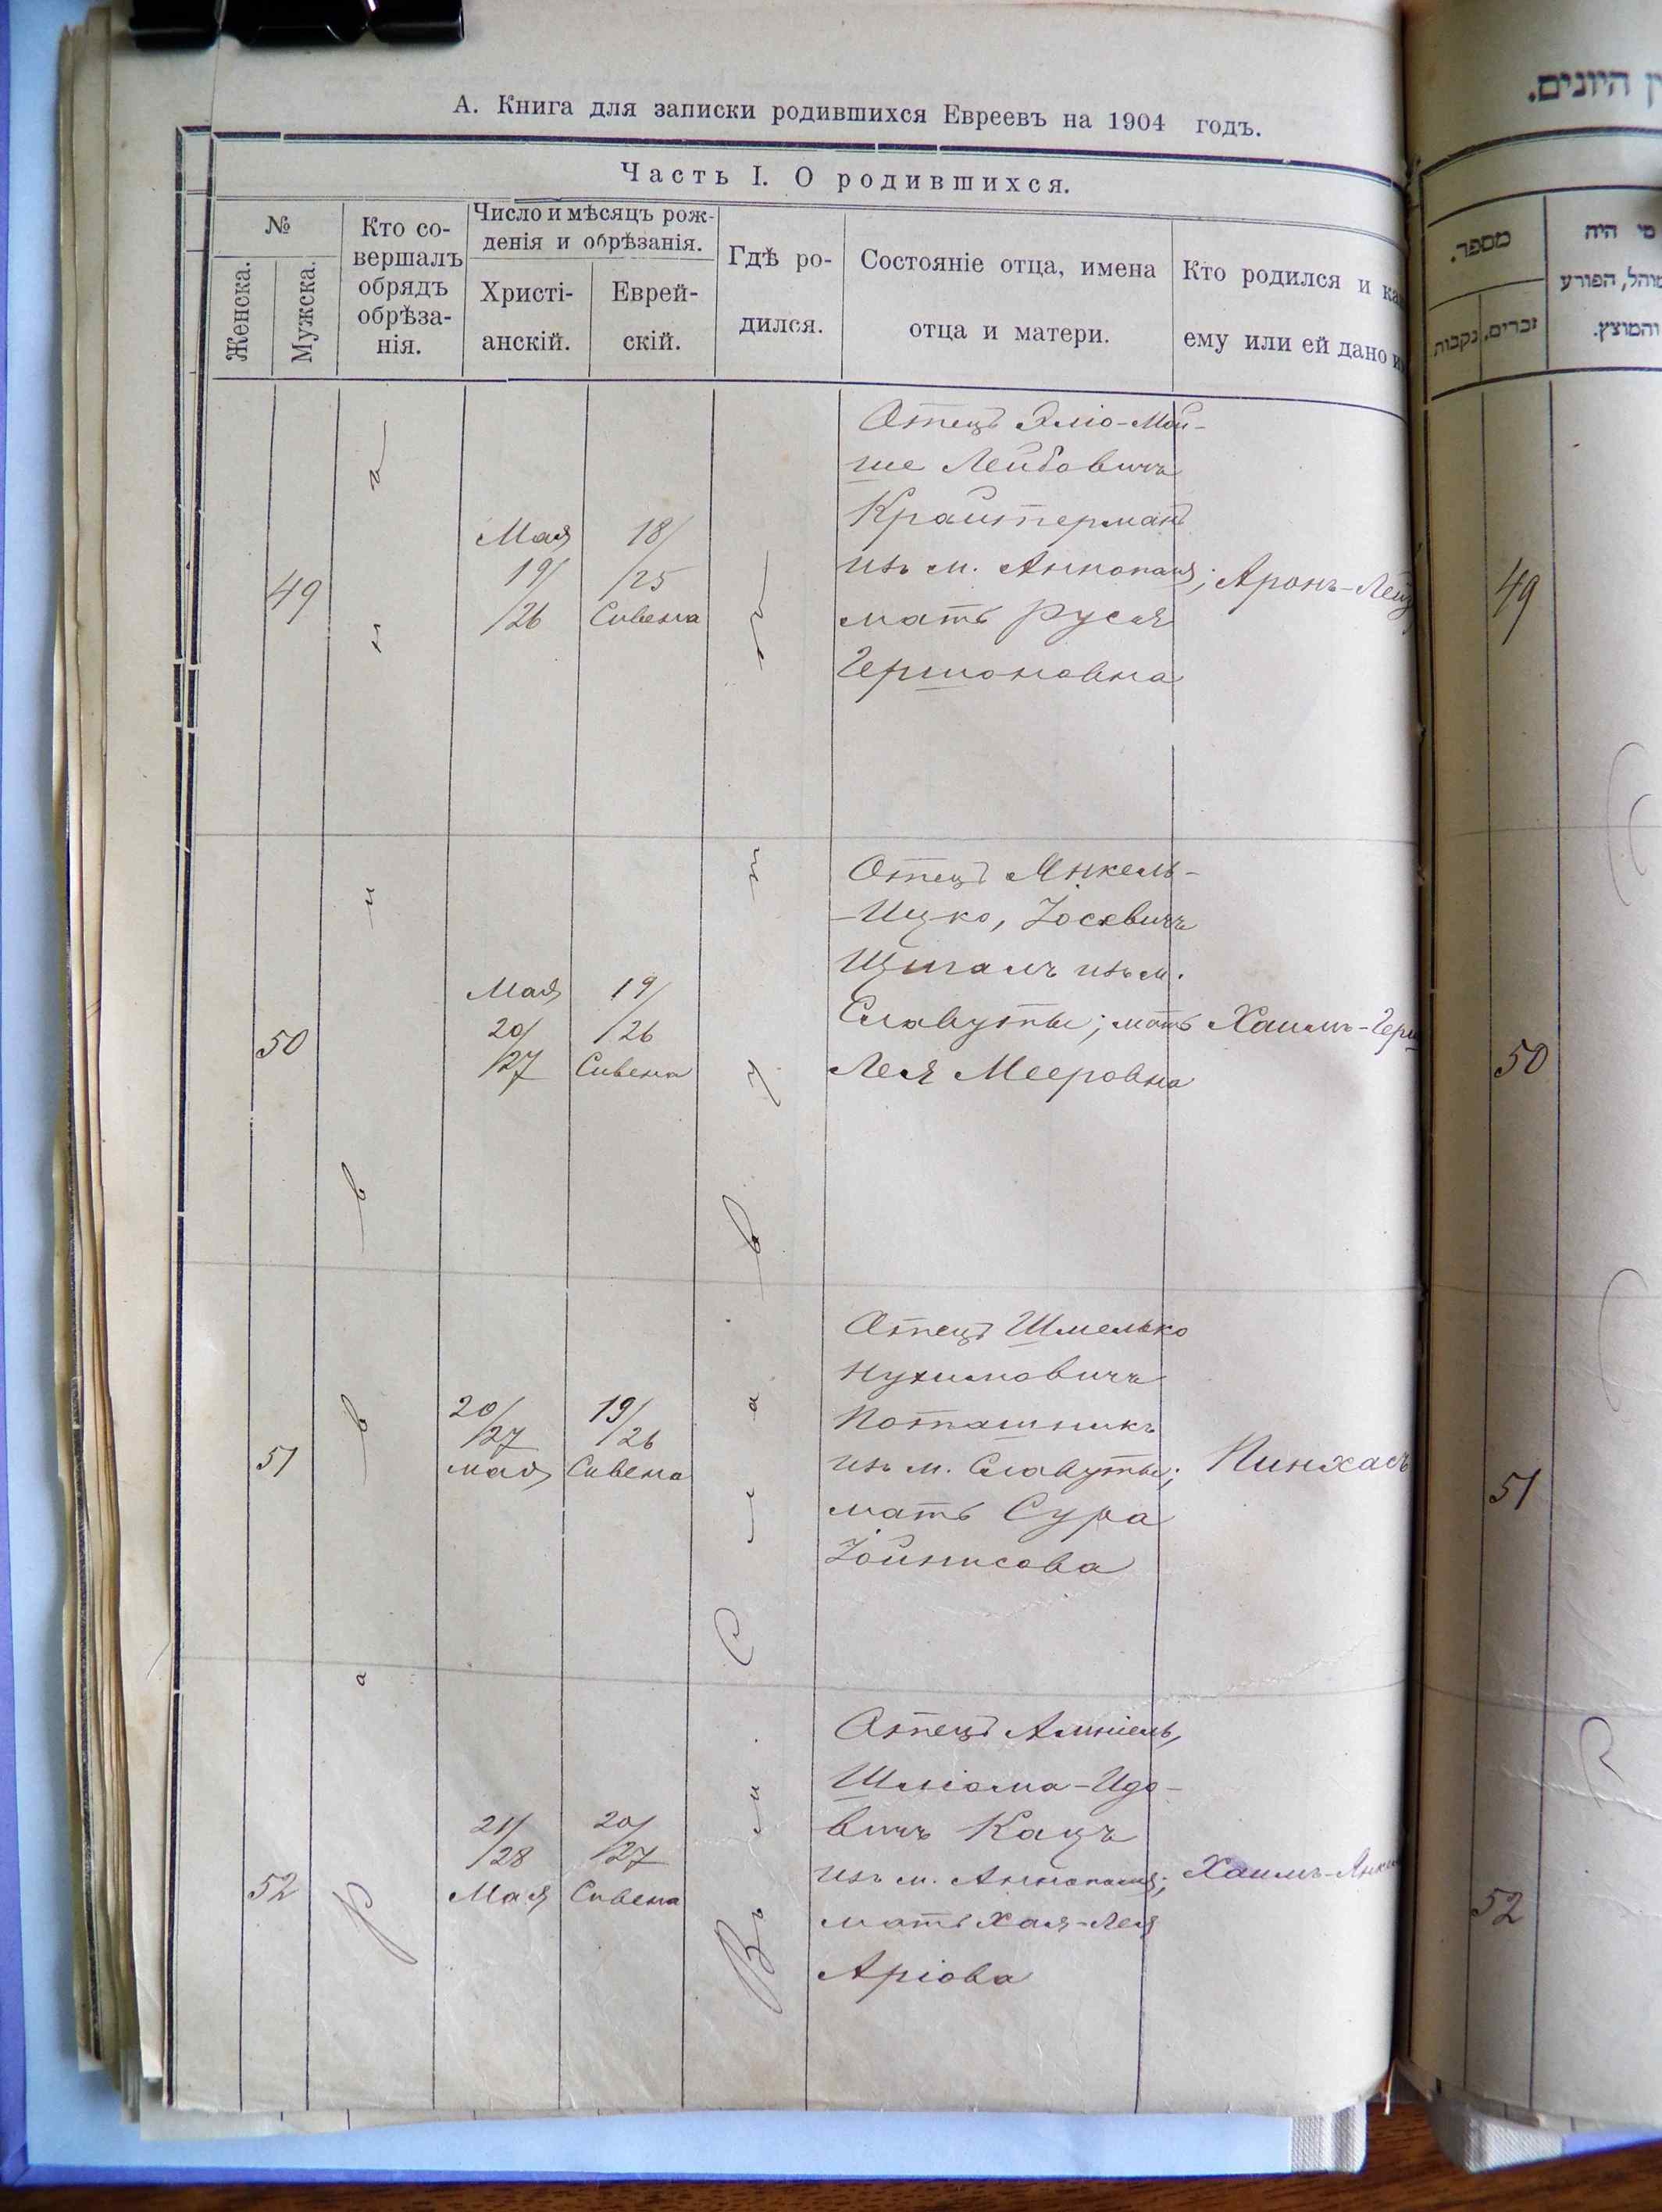 А. Книга для записки родившихся Евреевъ на 1904 годъ.
Часть I. О родившихся.
№
Женска.
Мужска.
Кто со-
вершалъ
обрядъ
обрѣза-
нія.
Число и мѣсяцъ рож-
денія и обрѣзанія.
Христі-
анскій.
Еврей-
скій.
Гдѣ ро-
дился.
Состояніе отца, имена
отца и матери.
Кто родился и ка
ему или ей дано и
Раввинъ
Въ м. Славутѣ
49
Мая
19/
/26
18/
/25
Сивена
Отецъ Эліо-Мой-
ше Лейбовичъ
Крайтерманъ
изъ м. Аннополя;
мать Руся
Гершоновна
Аронъ-Лейз
50
Мая
20/
/27
19/
/26
Сивена
Отецъ Янкель-
-Ицко, Іосевичъ
изъ м.
Славуты; мать
Лея Мееровна
Хаимъ-Герш
51
20/
/27
мая
19/
/26
Сивена
Отецъ Шмелько
Нухимовичъ
Поташникъ
изъ м. Славуты;
мать Сура
Іойнисова
Пинхасъ
52
21/
/28
Мая
20/
/27
Сивена
Отецъ
Шліома-Идо-
вичъ Кацъ
изъ м. Аннополя;
мать Хая-Лея
Аріова
Хаимъ-Янк
ן היונים.
מספר.
זכרים, נקבות
מי היה
מוהל, הפורע
והמוצץ.
49
50
51
52